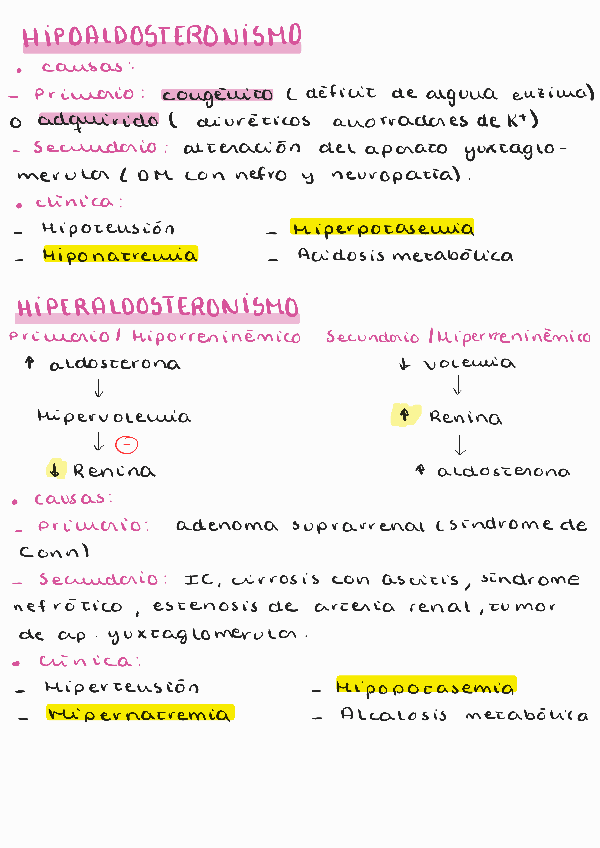 HIPOALDOSTERONISMO
• causas:
- Primario: congénito (déficit de alguna enzima)
o adquirido ( diuréticos ahorradores de K+)
- Secundario: alteración del aparato yuxtaglo-
merular (DM con nefro y neuropatía).
• clínica:
- Hipotensión - Hiperpotasemia
- Hiponatremia - Acidosis metabólica
HIPERALDOSTERONISMO
Primario / Hiporreninémico Secundario / Hiperreninémico
↑ aldosterona ↓ volemia
↓ ↓
Hipervolemia ↑ Renina
↓ - ↓
↓ Renina ↑ aldosterona
• causas:
- Primario: adenoma suprarrenal (síndrome de
Conn)
- Secundario: IC, cirrosis con ascitis, síndrome
nefrótico, estenosis de arteria renal, tumor
de ap. yuxtaglomerular.
• Clínica:
- Hipertensión - Hipopotasemia
- Hipernatremia - Alcalosis metabólica